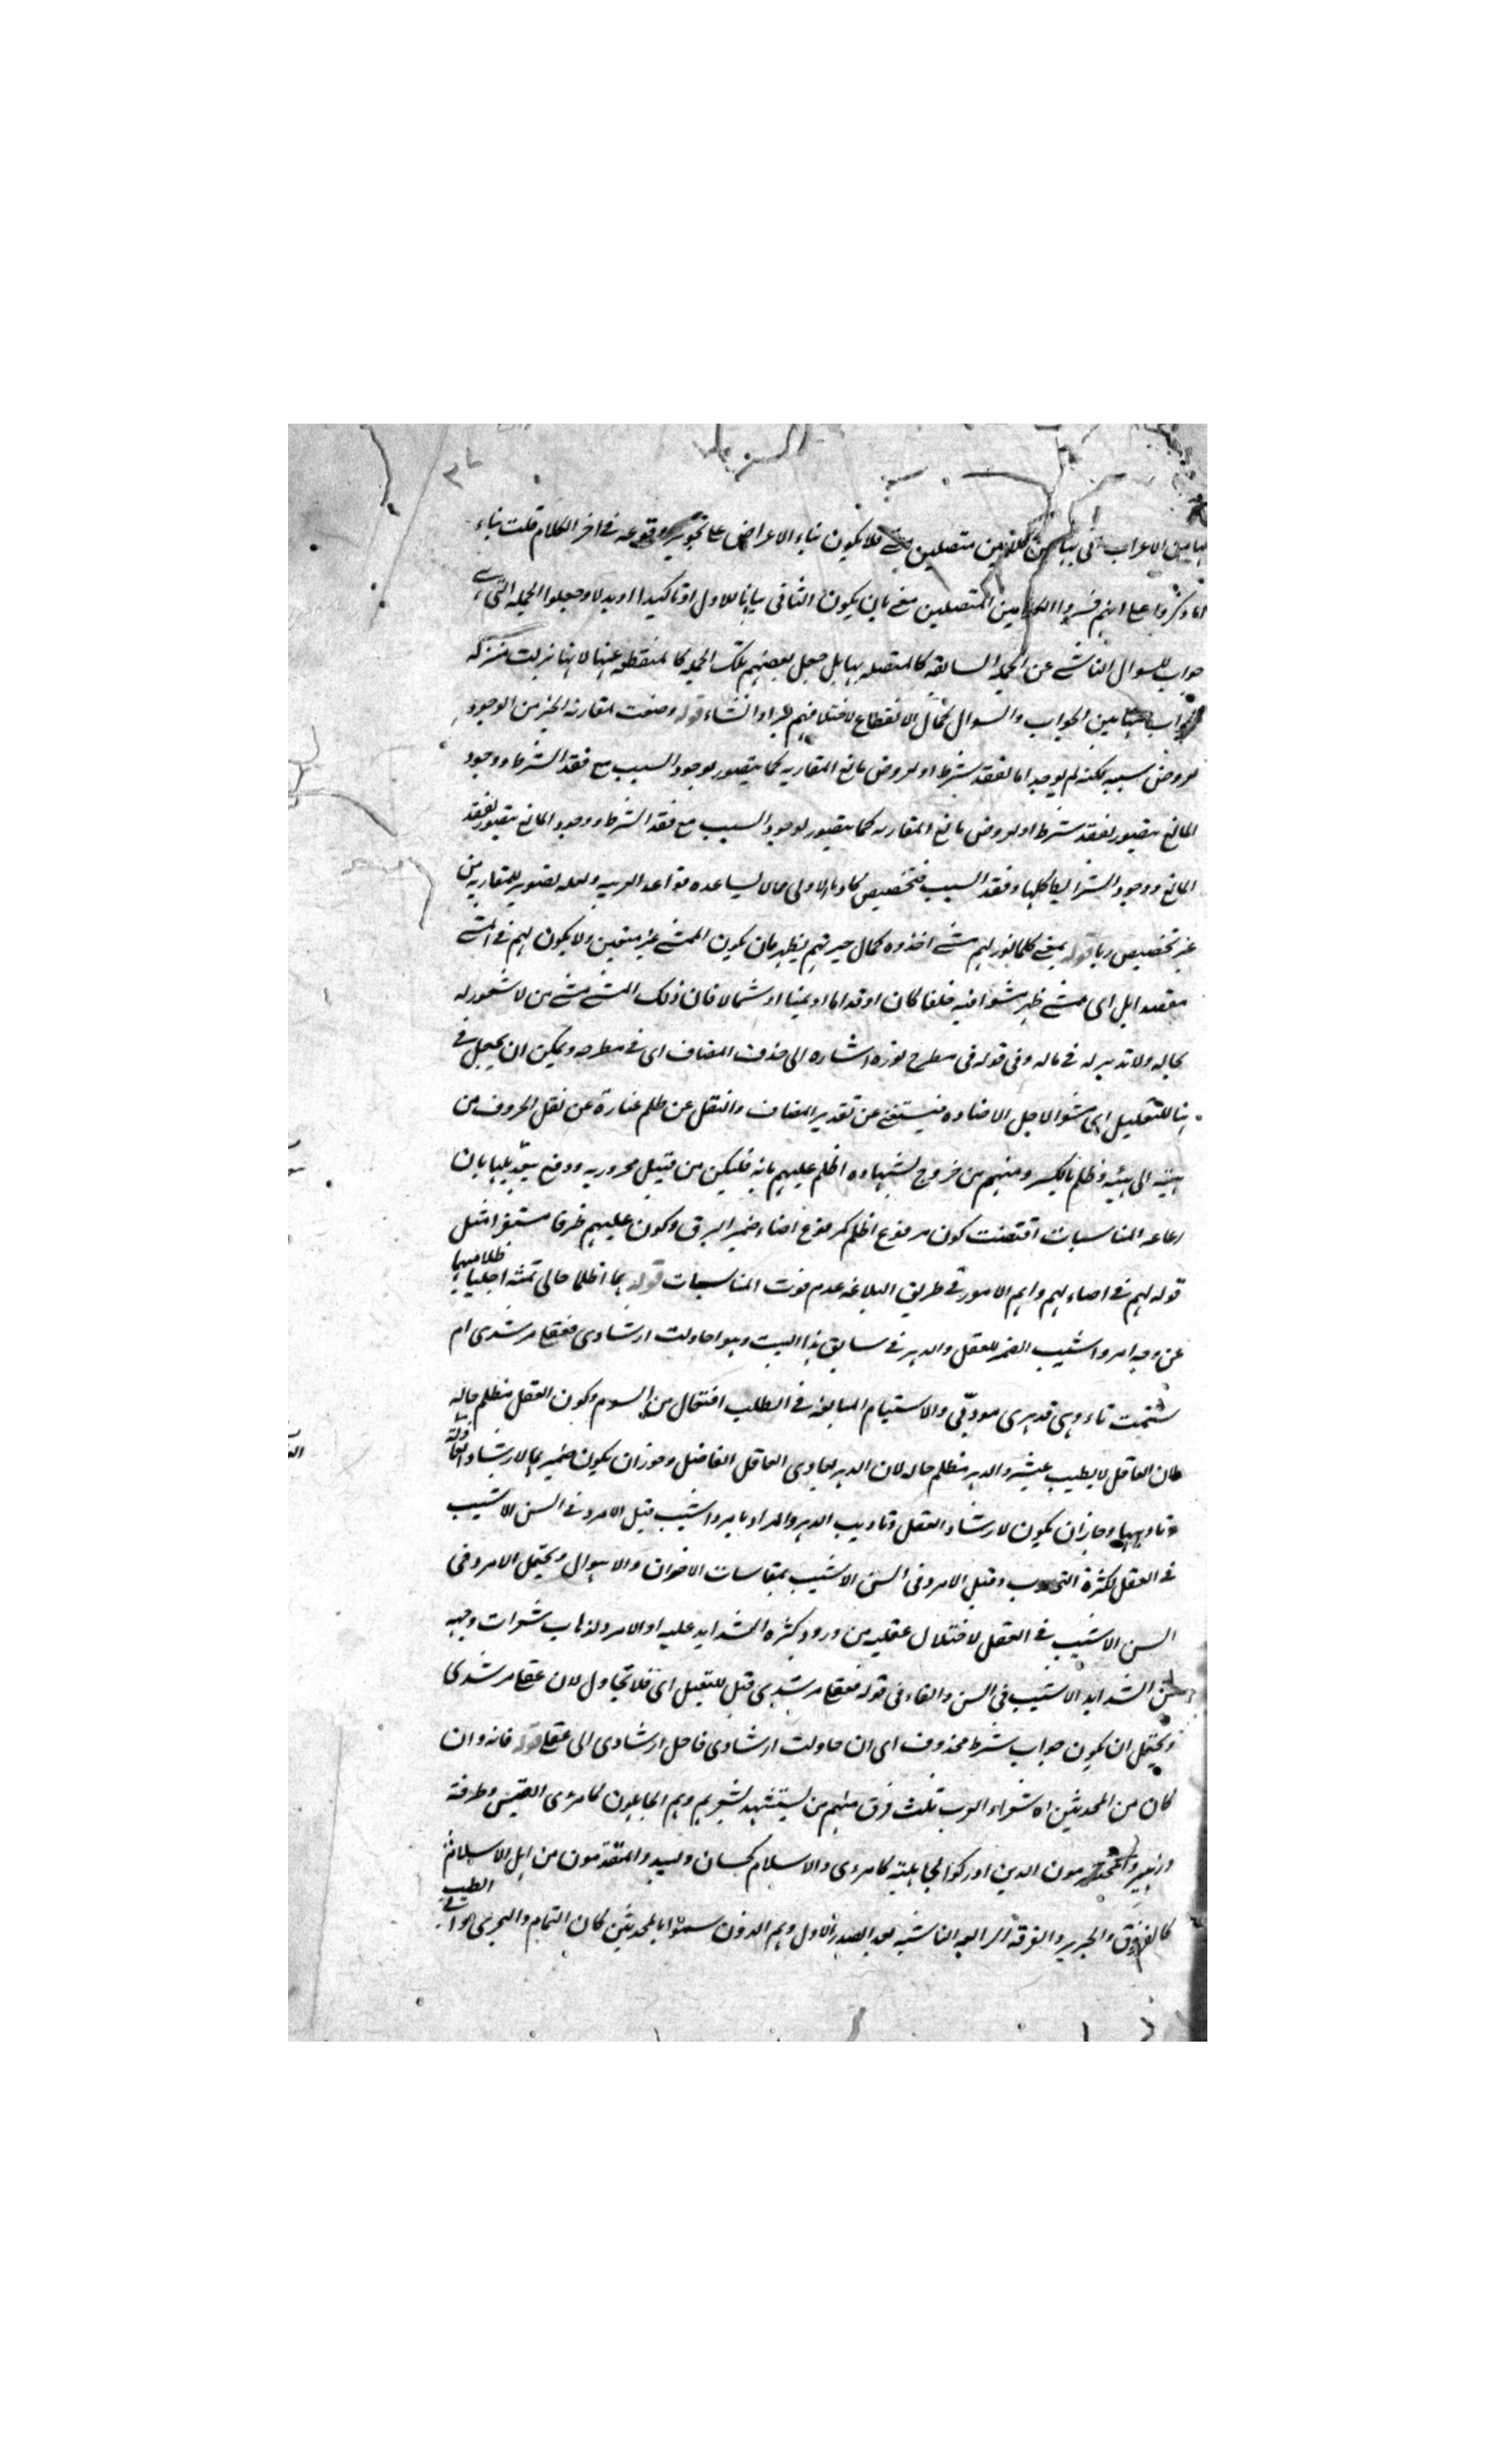 لها من الاعراب في بيان بين كلامين متصلين معنى فلا يكون بناء الاعراض على تجويز وقوعه في اخر الكلام قلت بناء
ما ذكروا على انهم فسروا الكلامين المتصلين معنى بان يكون الثاني بيانا للاول او تاكيدا او بدلا وجعلوا الجملة التي هي
جواب للسوال الناشئ عن الجملة السابقة كالمتصلة بها بل جعل بعضهم تلك الجملة كالمنقطعة عنها لانها نزلت منزلة
الجواب بين الجواب والسوال كمال الانقطاع لاختلافهم خبرا وانشاء قوله وضعت لمقاربة الخبر من الوجود
لعروض سببه لكنه لم يوجد اما لفقد شرط او لعروض مانع المقاربه كما يتصور لوجود السبب مع فقد الشرط ووجود
المانع يتصور لفقد شرط او لعروض مانع المقاربه كما يتصور لوجود السبب مع فقد الشرط ووجود المانع يتصور لفقد
المانع ووجود الشرائط كلها وفقد السبب فتخصيص كاد بالاولى مما لا يساعده قواعد العربيه ولعله تصوير للمقاربه من
غير تخصيص وبها قوله يعنى كلما نور لهم مشى اخذوه كمال حيرتهم يظهر بان يكون الممشى غير متعين ولا يكون لهم في المشى
مقصد اهل اى ممشى ظهر مشوا فيه خلفا كان او قداما او يمينا او شمالا فان ذلك المشى مشى من لا شعور له
بحاله ولا تدبير له في ماله وفى قوله فى مطرح نوره اشاره الى حذف المضاف اى في مطرحه ويمكن ان يجعل في
هنا للتعليل اى مشوا لاجل الاضاءه فيستغنى عن تقدير المضاف والنقل عن ظلم عبارة عن نقل الحروف من
هيئته الى هيئه وظلم بالكسر ومنهم من خروج لشهاده اظلم عليهم بانه فليكن من قبيل مجروريه ودفع بتعديلها بان
رعاعه المناسبات اقتضت كون مرفوع اظلم كمرفوع اضاء ضمير البرق وكون عليهم ظرفا مستقرا مثل
قوله لهم في اضاء لهم واهم الامور فى طريق البلاغه عدم فوت المناسبات قوله هما اظلما حالى ثمت اجليا ظلاميهما
عن وجه امرد اشيب الضمير للعقل والدهر في سابق هذا البيت وهو احاولت ارشادى فعقلى مرشدى ام
اشتمت تاديبى فدهرى مودبى والاستيام المبالغه في الطلب افتعال من السوم وكون العقل مظلم حاله
فان العاقل لا يطيب عيشه والدهر مظلم حاله لان الدهر يعادى العاقل الفاضل وجوز ان يكون ضمير هما لارشاد العاذلة
وتاديبها وجاز ان يكون لارشاد العقل وتاديب الدهر والمراد بامرد اشيب قيل الامرد في السن الاشيب
في العقل لكثرة التجارب وقيل الامرد فى السن الاشيب بمقاسات الاخوان والاهوال ويحتمل الامرد فى
السن الاشيب في العقل لاختلال عقله من ورود كثره الشدايد عليه او الامرد لذهاب شعرات وجهه
من الشدايد الاشيب فى السن والفاء فى قوله فعقلى مرشدى قيل للتعليل اى فلا تحاول لان عقلى مرشدى
ويحتمل ان يكون جواب شرط محذوف اى ان حاولت ارشادى فاحل ارشادى الى عقلى قوله فانه وان
كان من المحدثين اه شعراء العرب ثلث فرق منهم من يستشهد بشعرهم وهم الجاهليون كامرئ القيس وطرفة
وزهير والمخضرمون الذين ادركوا الجاهلية والاسلام كحسان ولبيد والمتقدمون من اهل الاسلام
كالفرزدق والجرير والفرقة الرابعه الناشيه بعد الصدر الاول وهم الذون سموا بالمحدثين كان التمام والبحترى وابى الطيب